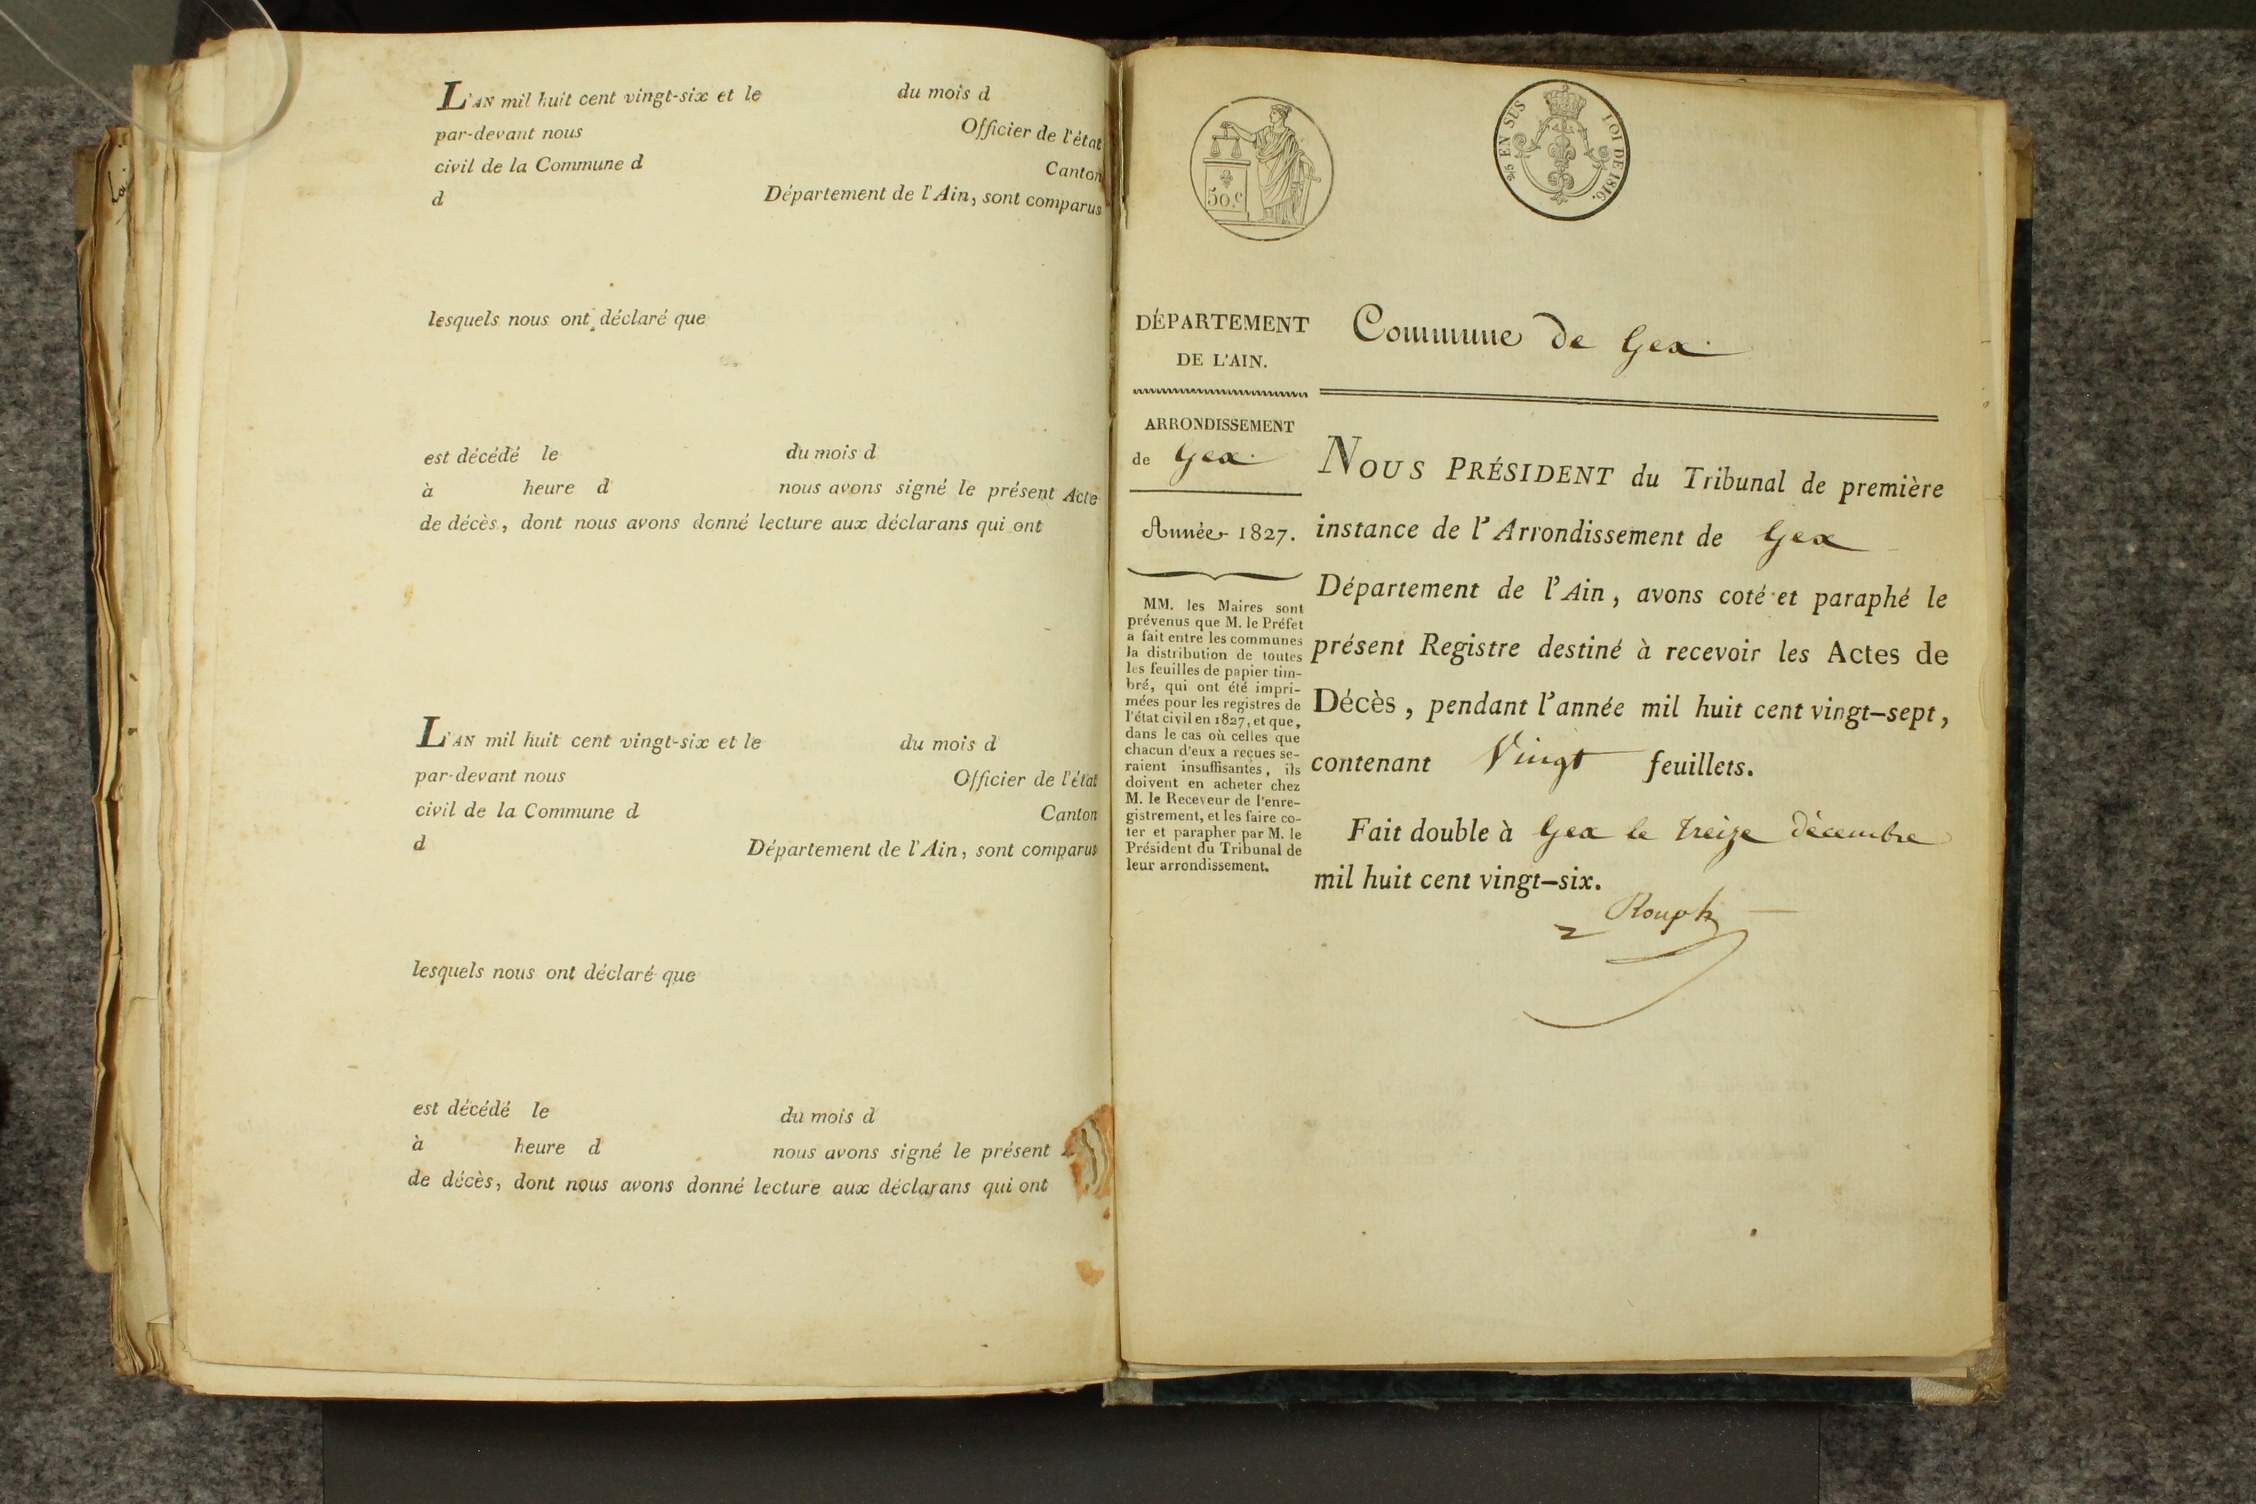 L'AN mil huit cent vingt-six et le du mois d
par-devant nous Officier de l'état
civil de la Commune d Canton
d Département de l'Ain, sont comparus
lesquels nous ont déclaré que
est décédé le du mois d
à heure d nous avons signé le présent Acte
de décès, dont nous avons donné lecture aux déclarans qui ont
L'AN mil huit cent vingt-six et le du mois d
par-devant nous Officier de l'état
civil de la Commune d Canton
d Département de l'Ain, sont comparus
lesquels nous ont déclaré que
est décédé le du mois d
à heure d nous avons signé le présent
de décès, dont nous avons donné lecture aux déclarans qui ont
50.c
EN SUS LOI DE 1816.
DÉPARTEMENT
DE L'AIN.
ARRONDISSEMENT
de Gex.
Année 1827.
MM. les Maires sont
prévenus que M. le Préfet
a fait entre les communes
la distribution de toutes
les feuilles de papier tim-
bré, qui ont été impri-
mées pour les registres de
l'état civil en 1827, et que,
dans le cas où celles que
chacun d'eux a reçues se-
raient insuffisantes, ils
doivent en acheter chez
M. le Receveur de l'enre-
gistrement, et les faire co-
ter et parapher par M. le
Président du Tribunal de
leur arrondissement.
Commune de Gex.
NOUS PRÉSIDENT du Tribunal de première
instance de l'Arrondissement de Gex
Département de l'Ain, avons coté et paraphé le
présent Registre destiné à recevoir les Actes de
Décès, pendant l'année mil huit cent vingt-sept,
contenant Vingt feuillets.
Fait double à Gex le treize décembre
mil huit cent vingt-six.
Rouph